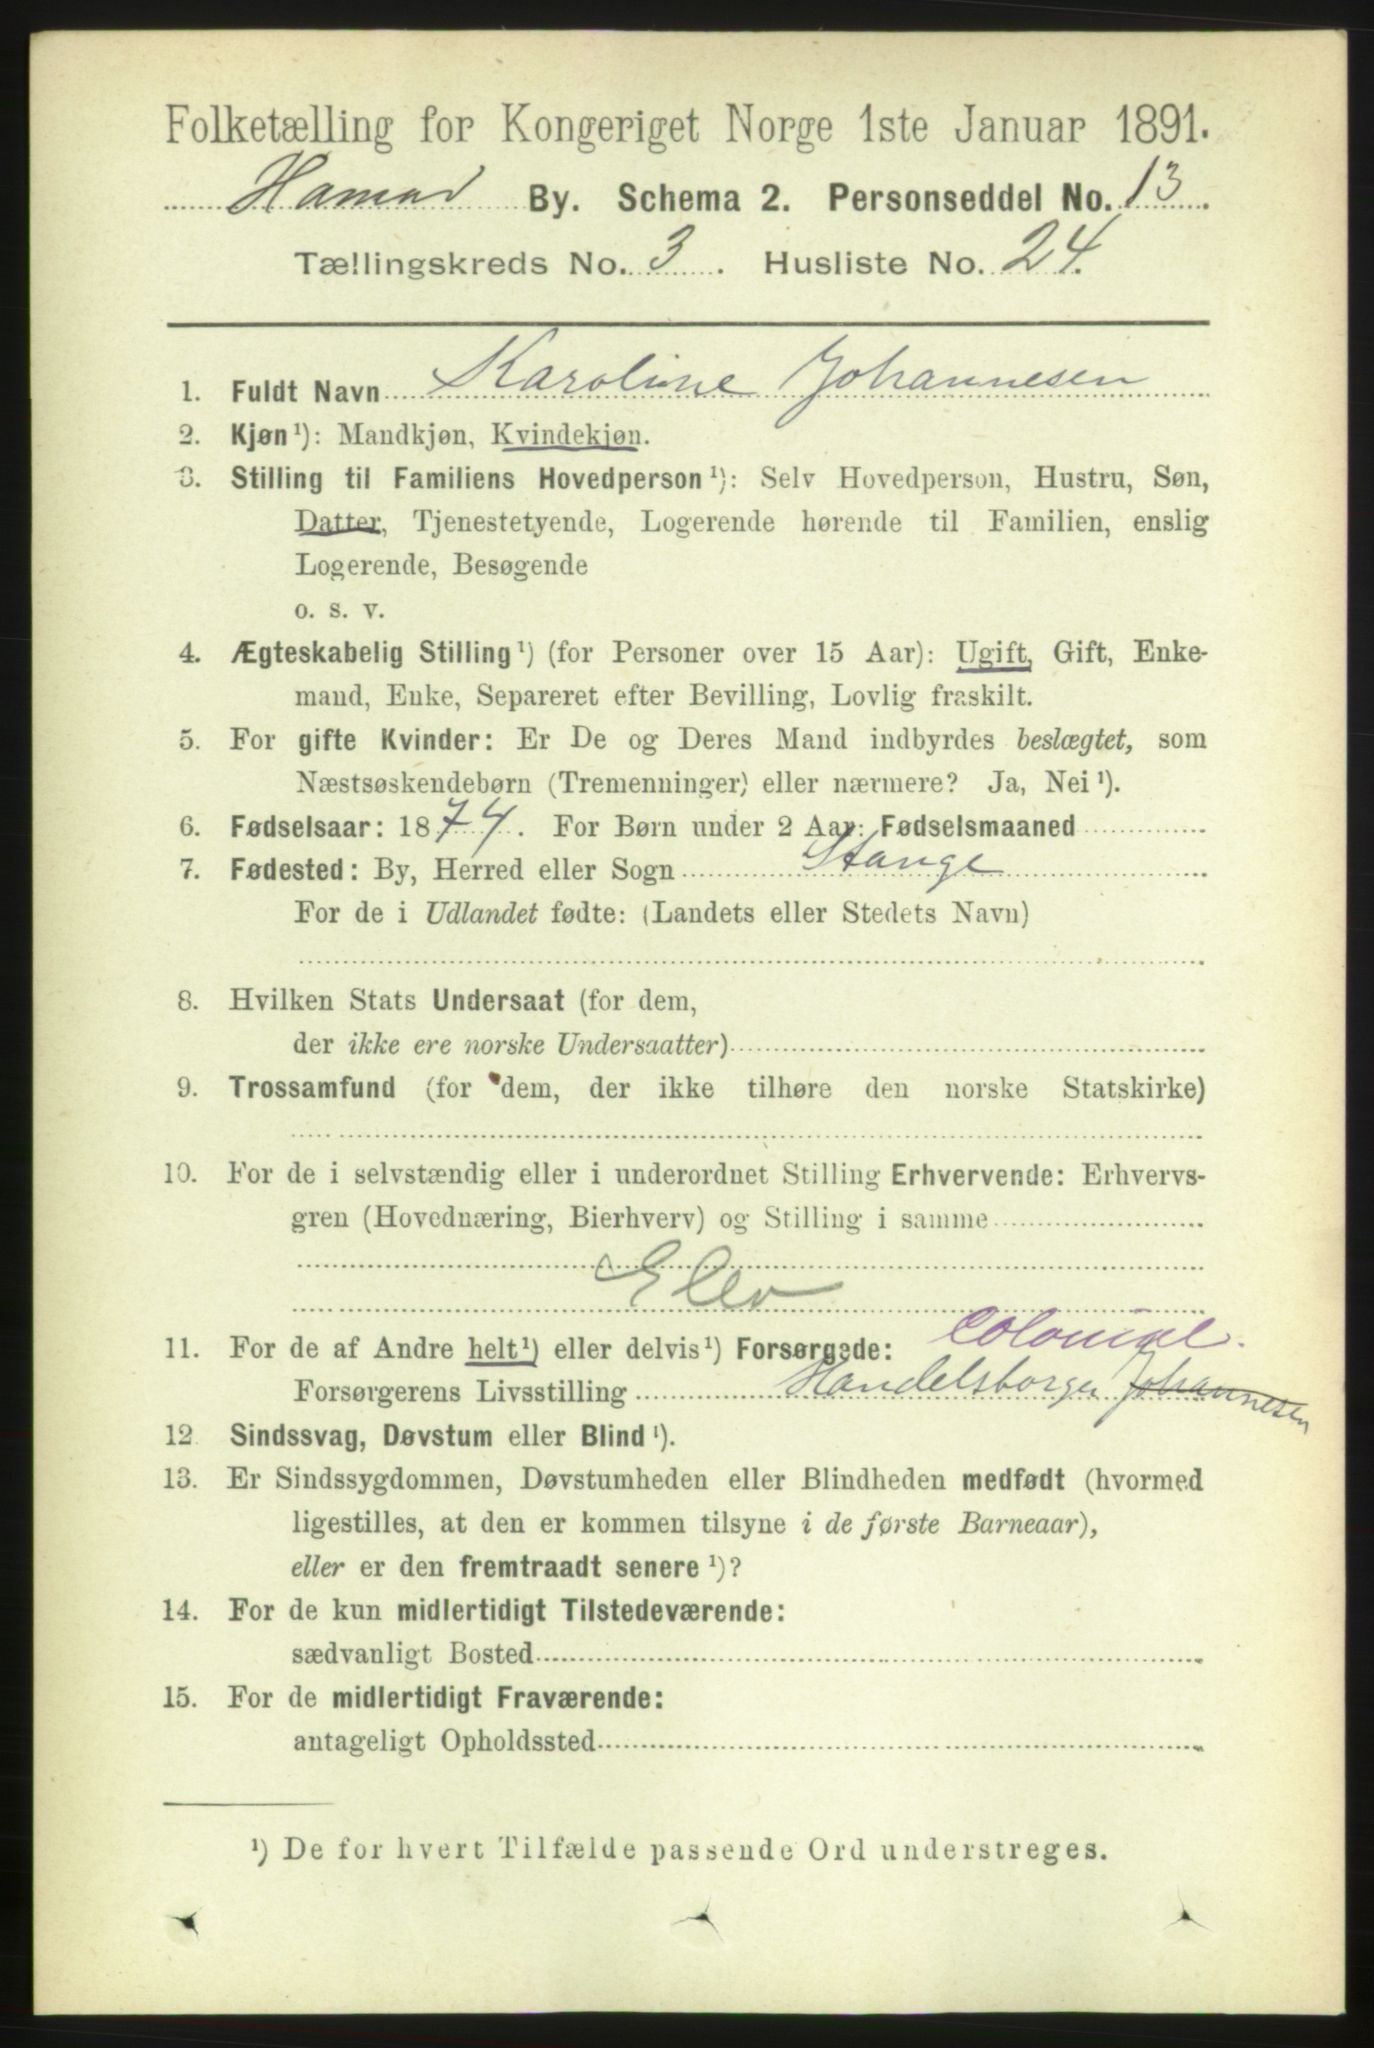 Folketælling for Kongeriget Norge 1ste Januar 1891.
Hamar By. Schema 2. Personseddel No. 13.
Tællingskreds No. 3. Husliste No. 24.
1. Fuldt Navn Karoline Johannesen
2. Kjøn¹): Mandkjøn, Kvindekjøn.
3. Stilling til Familiens Hovedperson¹): Selv Hovedperson, Hustru, Søn,
Datter, Tjenestetyende, Logerende hørende til Familien, enslig
Logerende, Besøgende
o. s. v.
4. Ægteskabelig Stilling¹) (for Personer over 15 Aar): Ugift, Gift, Enke-
mand, Enke, Separeret efter Bevilling, Lovlig fraskilt.
5. For gifte Kvinder: Er De og Deres Mand indbyrdes beslægtet, som
Næstsøskendebørn (Tremenninger) eller nærmere? Ja, Nei¹).
6. Fødselsaar: 1874. For Børn under 2 Aar: Fødselsmaaned
7. Fødested: By, Herred eller Sogn Stange
For de i Udlandet fødte: (Landets eller Stedets Navn)
8. Hvilken Stats Undersaat (for dem,
der ikke ere norske Undersaatter)
9. Trossamfund (for dem, der ikke tilhøre den norske Statskirke)
10. For de i selvstændig eller i underordnet Stilling Erhvervende: Erhvervs-
gren (Hovednæring, Bierhverv) og Stilling i samme
Elev
colonial.
11. For de af Andre helt¹) eller delvis¹) Forsørgede:
Forsørgerens Livsstilling Handelsborger Johannesen
12. Sindssvag, Døvstum eller Blind¹).
13. Er Sindssygdommen, Døvstumheden eller Blindheden medfødt (hvormed
ligestilles, at den er kommen tilsyne i de første Barneaar),
eller er den fremtraadt senere¹)?
14. For de kun midlertidigt Tilstedeværende:
sædvanligt Bosted
15. For de midlertidigt Fraværende:
antageligt Opholdssted
¹) De for hvert Tilfælde passende Ord understreges.